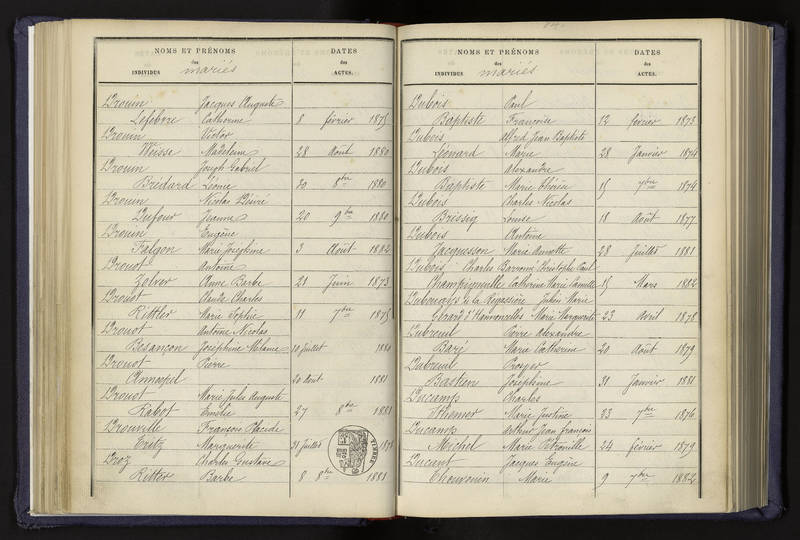 NOMS ET PRÉNOMS DATES
des des
INDIVIDUS mariés ACTES.
Drouin Jacques Auguste
Lefebvre Catherine 8 février 1875
Drouin Victor
Weisse Madeleine 28 Août 1880
Drouin Joseph Gabriel
Brédard Léonie 30 8bre 1880
Drouin Nicolas Désiré
Dufour Jeanne 20 9bre 1880
Drouin Eugène
Falgon Marie Joséphine 3 Août 1882
Drouot Antoine
Zobver Anne Barbe 21 Juin 1873
Drouot Claude Charles
Rittler Marie Sophie 11 7bre 1875
Drouot Antoine Nicolas
Besançon Joséphine Mélanie 10 Juillet 1880
Drouot Pierre
20 Août 1881
Drouot Marie Jules Auguste
Rabot Emélie 27 8bre 1881
Drouville François Placide
Eritz Marguerite 31 Juillet 1878
Droz Charles Gustave
Ritter Barbe 8 8bre 1881
NOMS ET PRÉNOMS DATES
des des
INDIVIDUS mariés ACTES.
Dubois Paul
Baptiste Françoise 12 février 1873
Dubois Alfred Jean Baptiste
Léonard Marie 28 Janvier 1874
Dubois Alexandre
Baptiste Marie Thérèse 15 7bre 1874
Dubois Charles Nicolas
Brissig Louise 18 Août 1877
Dubois Antoine
Jacquesson Marie Annette 28 Juillet 1881
Dubois Charles Christophe Paul
Champigneulle Catherine Marie Camille 15 Mars 1882
de la Régassière Julien Marie
Gérard d'Hannoncelles Marie Marguerite 23 Avril 1878
Dubreuil Pierre Alexandre
Baré Marie Catherine 20 Août 1879
Dubreuil Prosper
Bastien Joséphine 31 Janvier 1881
Ducamp Charles
Themer Marie Justine 23 7bre 1876
Ducamp Arthur Jean François
Michel Marie Pétronille 24 février 1879
Ducant Jacques Eugène
Thouvenin Marie 9 7bre 1882